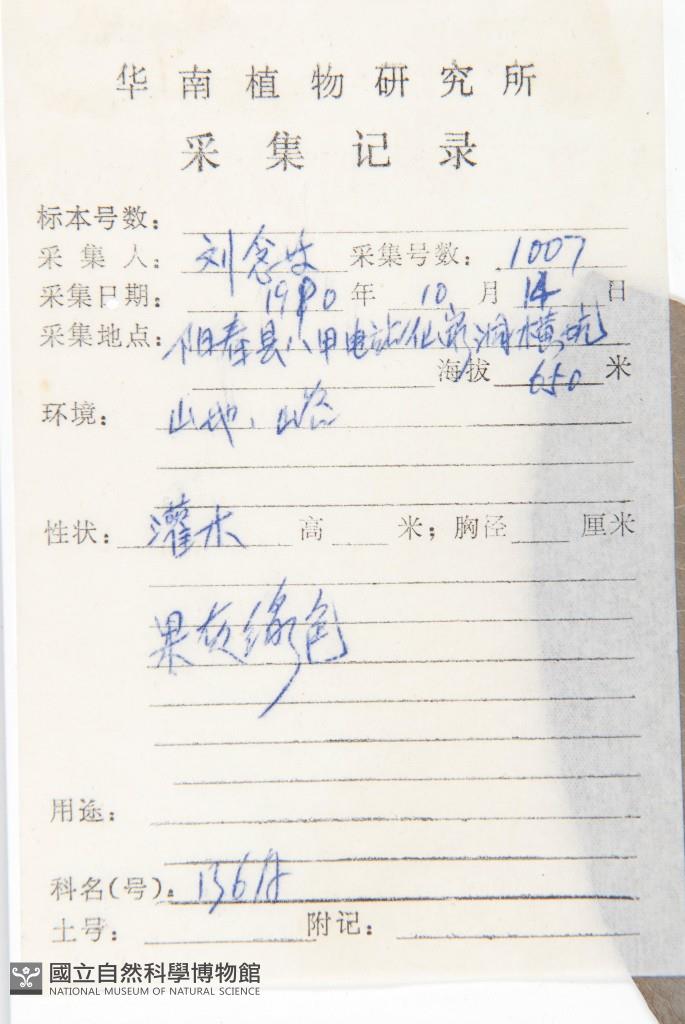 华南植物研究所
采集记录
标本号数：
采集人：刘念 采集号数：1007
采集日期：1990年10月14日
采集地点：阳春县八甲电站仙家洞横坑
海拔 650 米
环境：山地、山谷
性状：灌木 高 米；胸径 厘米
果灰绿色
用途：
科名(号)：136A
土号： 附记：
國立自然科學博物館
NATIONAL MUSEUM OF NATURAL SCIENCE